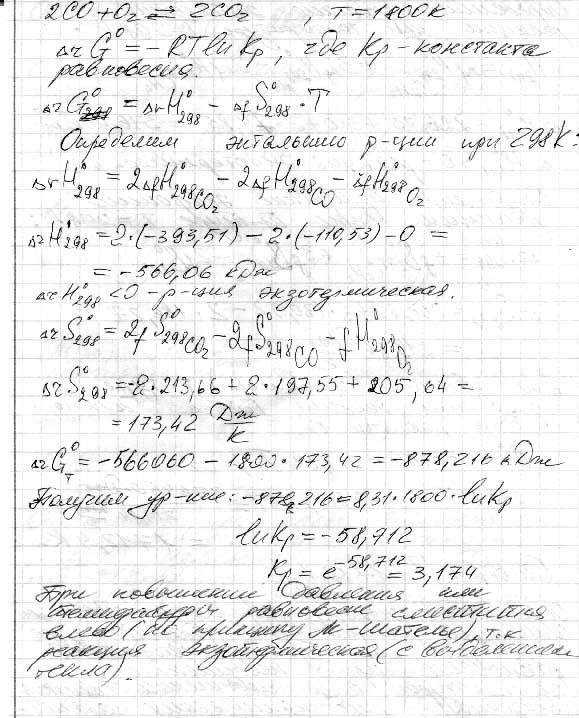 2CO + O₂ ⇌ 2CO₂ , T = 1800K
ΔrG° = -RT ln Kp, где Kp - константа
равновесия.
ΔrG°298 = ΔrH°298 - ΔfS°298 · T
Определим энтальпию р-ции при 298K:
ΔrH°298 = 2ΔfH°298CO₂ - 2ΔfH°298CO - ΔfH°298O₂
ΔrH°298 = 2·(-393,51) - 2·(-110,53) - 0 =
= -566,06 кДж
ΔrH°298 < 0 - р-ция экзотермическая.
ΔrS°298 = 2fS°298CO₂ - 2fS°298CO - fH°298O₂
ΔrS°298 = -2·213,66 + 2·197,55 + 205,04 =
= 173,42 Дж/K
ΔrG°T = -566060 - 1800·173,42 = -878,216 кДж
Получим ур-ние: -878,216 = 8,31·1800·ln Kp
ln Kp = -58,712
Kp = e^-58,712 = 3,174
При повышении давления или
температуры равновесие сместится
влево (по принципу Ле-Шателье), т.к
реакция экзотермическая (с выделением
тепла).